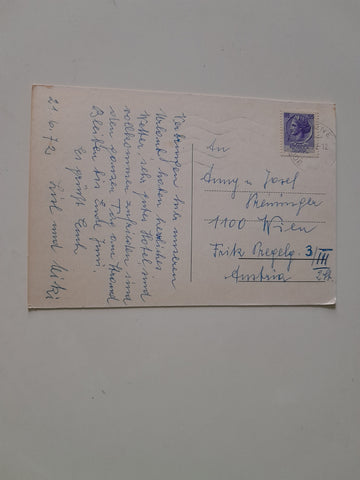 21.6.72
Verbringen hier unseren
Urlaub, haben herrliches
Wetter, sehr gutes Hotel und
vollkommen zufrieden sind
den ganzen Tag am Strand
Bleiben bis Ende Juni.
Es grüßt Euch
und
An
Anny u. Josef
1100 Wien
Fritz Pregelg. 3/III
Austria